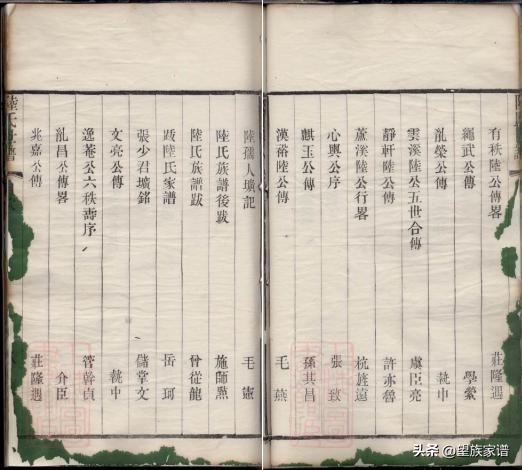 有秩陸公傳畧 莊隆遇
繩武公傳 學縈
胤榮公傳 執中
雲溪陸公五世合傳 虞臣亮
靜軒陸公傳 許亦魯
蘆溪陸公行畧 杭旌遠
心輿公序 張致
麒玉公傳 孫其昌
漢裕陸公傳 毛燕
陸孺人壙記 毛憲
陸氏族譜後跋 施師㸃
陸氏族譜跋 曾從龍
跋陸氏家譜 岳珂
張少君壙銘 儲掌文
文亮公傳 執中
逸菴公六秩壽序 管幹貞
胤昌公傳畧 介臣
兆嘉公傳 莊隆遇
陸氏世譜
头条 @望族家谱